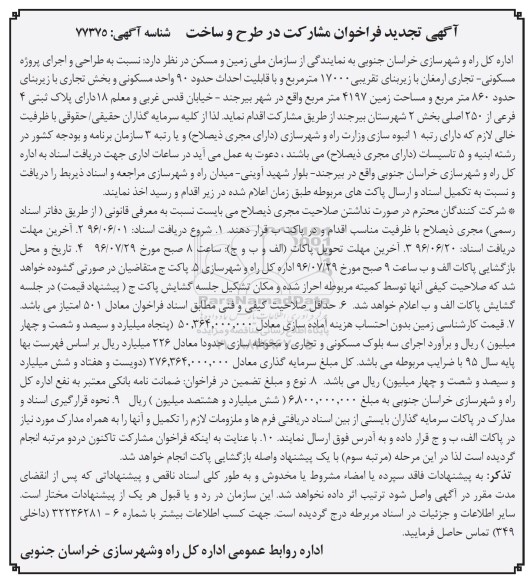 آگهی تجدید فراخوان مشارکت در طرح و ساخت شناسه آگهی: ۷۷۳۷۵
اداره کل راه و شهرسازی خراسان جنوبی به نمایندگی از سازمان ملی زمین و مسکن در نظر دارد: نسبت به طراحی و اجرای پروژه
مسکونی- تجاری ارمغان با زیربنای تقریبی۱۷۰۰۰ مترمربع و با قابلیت احداث حدود ۹۰ واحد مسکونی و بخش تجاری با زیربنای
حدود ۸۶۰ متر مربع و مساحت زمین ۴۱۹۷ متر مربع واقع در شهر بیرجند - خیابان قدس غربی و معلم ۱۸دارای پلاک ثبتی ۴
فرعی از ۲۵۰ اصلی بخش ۲ شهرستان بیرجند از طریق مشارکت اقدام نماید. لذا از کلیه سرمایه گذاران حقیقی/ حقوقی با ظرفیت
خالی لازم که دارای رتبه ۱ انبوه سازی وزارت راه و شهرسازی (دارای مجری ذیصلاح) و یا رتبه ۳ سازمان برنامه و بودجه کشور در
رشته ابنیه و ۵ تاسیسات (دارای مجری ذیصلاح) می باشند ، دعوت به عمل می آید در ساعات اداری جهت دریافت اسناد به اداره
کل راه و شهرسازی خراسان جنوبی واقع در بیرجند- بلوار شهید آوینی- میدان راه و شهرسازی مراجعه و اسناد ذیربط را دریافت
و نسبت به تکمیل اسناد و ارسال پاکت های مربوطه طبق زمان اعلام شده در زیر اقدام و رسید اخذ نمایند.
* شرکت کنندگان محترم در صورت نداشتن صلاحیت مجری ذیصلاح می بایست نسبت به معرفی قانونی ( از طریق دفاتر اسناد
رسمی) مجری ذیصلاح با ظرفیت مناسب اقدام و در پاکت ب قرار دهند. ۱. شروع دریافت اسناد: ۹۶/۰۶/۰۱ ۲. آخرین مهلت
دریافت اسناد: ۹۶/۰۶/۲۰ ۳. آخرین مهلت تحویل پاکات (الف و ب و ج)، ساعت ۸ صبح مورخ ۹۶/۰۷/۲۹ ۴. تاریخ و محل
بازگشایی پاکات الف و ب ساعت ۹ صبح مورخ ۹۶/۰۷/۲۹ اداره کل راه و شهرسازی ۵. پاکت ج متقاضیان در صورتی گشوده خواهد
شد که صلاحیت کیفی آنها توسط کمیته مربوطه احراز شده و مکان تشکیل جلسه گشایش پاکت ج ( پیشنهاد قیمت) در جلسه
گشایش پاکات الف و ب اعلام خواهد شد. ۶. حداقل صلاحیت کیفی و فنی مطابق اسناد فراخوان معادل ۵۰۱ امتیاز می باشد.
۷. قیمت کارشناسی زمین بدون احتساب هزینه آماده سازی معادل ۵۰,۳۶۴,۰۰۰,۰۰۰ (پنجاه میلیارد و سیصد و شصت و چهار
میلیون ) ریال و برآورد اجرای سه بلوک مسکونی و تجاری و محوطه سازی حدودا معادل ۲۲۶ میلیارد ریال بر اساس فهرست بها
پایه سال ۹۵ با ضرایب مربوطه می باشد. کل مبلغ سرمایه گذاری معادل ۲۷۶,۳۶۴,۰۰۰,۰۰۰ (دویست و هفتاد و شش میلیارد
و سیصد و شصت و چهار میلیون) ریال می باشد. ۸ نوع و مبلغ تضمین در فراخوان: ضمانت نامه بانکی معتبر به نفع اداره کل
راه و شهرسازی خراسان جنوبی به مبلغ ۶۸۰۰,۰۰۰,۰۰۰ ( شش میلیارد و هشتصد میلیون ) ریال ۹. نحوه قرارگیری اسناد و
مدارک در پاکات سرمایه گذاران بایستی از بین اسناد دریافتی فرم ها و ملزومات لازم را تکمیل و آنها را به همراه مدارک مورد نیاز
در پاکات الف، ب و ج قرار داده و به آدرس فوق ارسال نمایند. ۱۰. با عنایت به اینکه فراخوان مشارکت تاکنون دردو مرتبه انجام
گردیده است لذا در این مرحله (مرتبه سوم) با یک پیشنهاد واصله بازگشایی پاکت انجام خواهد شد.
تذکر: به پیشنهادات فاقد سپرده یا امضاء مشروط یا مخدوش و به طور کلی اسناد ناقص و پیشنهاداتی که پس از انقضای
مدت مقرر در آگهی واصل شود ترتیب اثر داده نخواهد شد. این سازمان در رد و یا قبول هر یک از پیشنهادات مختار است.
سایر اطلاعات و جزئیات در اسناد مربطه درج گردیده است. جهت کسب اطلاعات بیشتر با شماره ۶ - ۳۲۲۳۶۲۸۱ (داخلی
۳۴۹) تماس حاصل فرمایید.
اداره روابط عمومی اداره کل راه وشهرسازی خراسان جنوبی